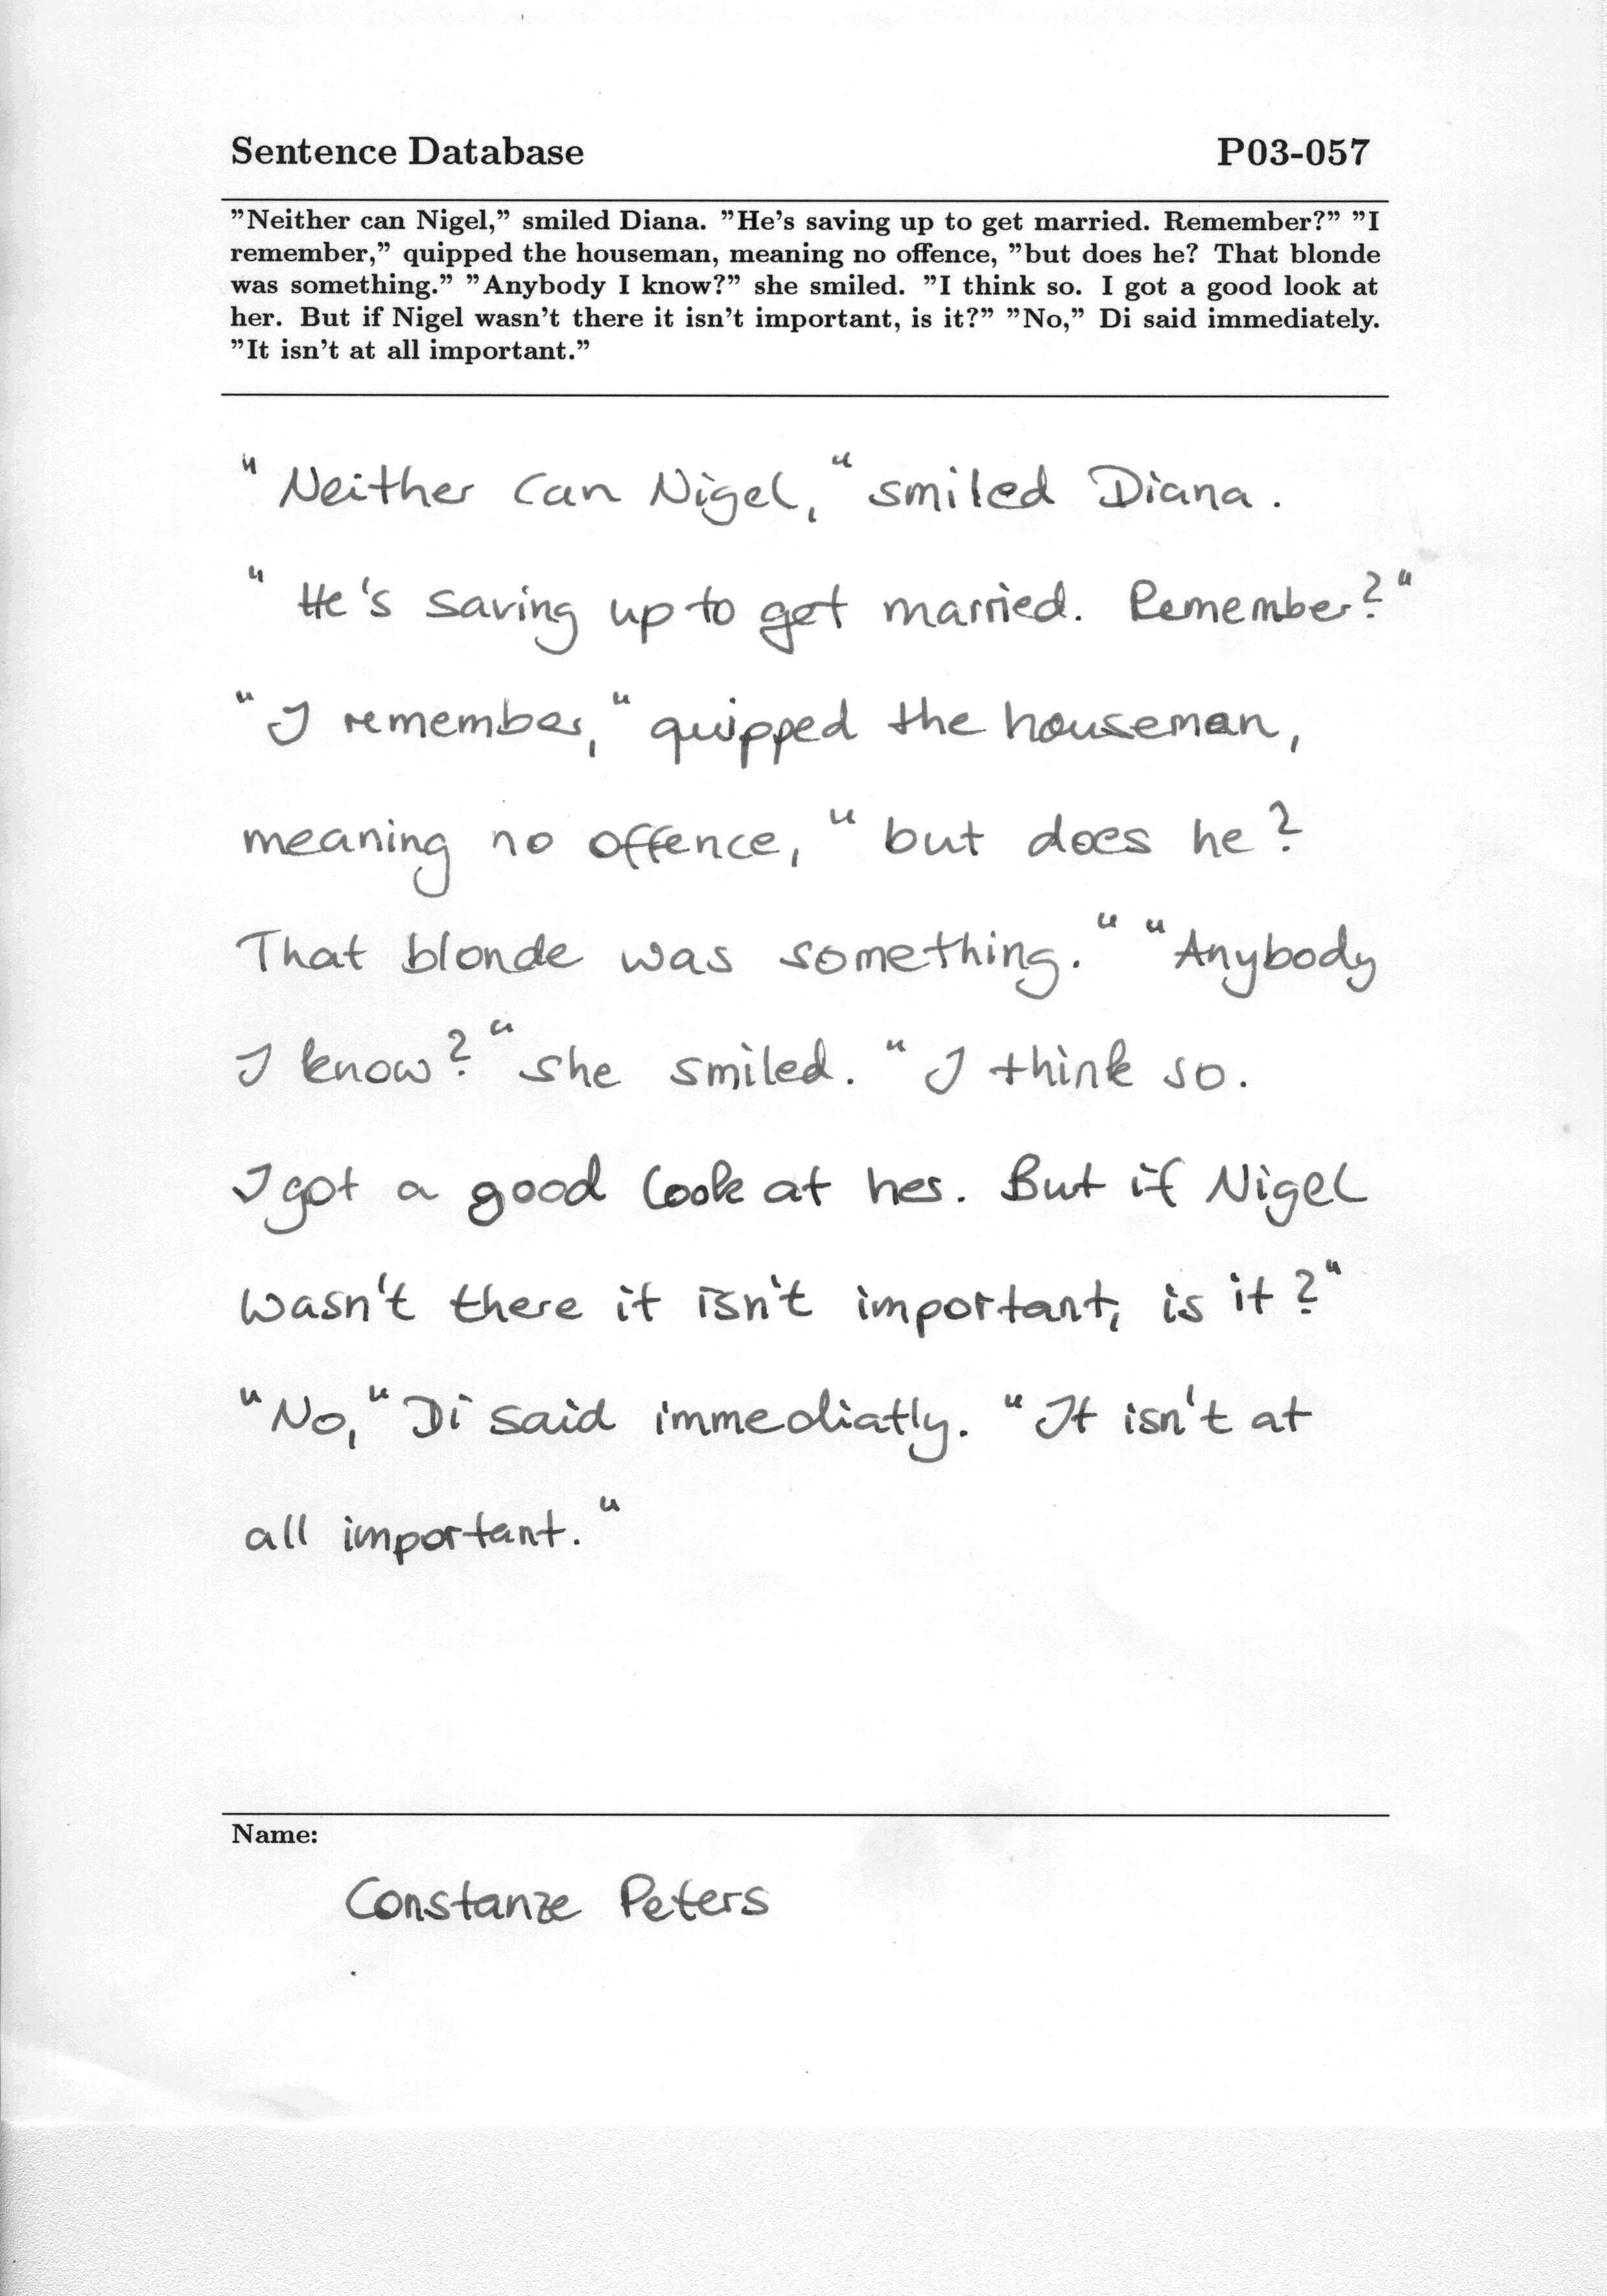 Sentence Database P03-057
”Neither can Nigel,” smiled Diana. ”He’s saving up to get married. Remember?” ”I
remember,” quipped the houseman, meaning no offence, ”but does he? That blonde
was something.” ”Anybody I know?” she smiled. ”I think so. I got a good look at
her. But if Nigel wasn’t there it isn’t important, is it?” ”No,” Di said immediately.
”It isn’t at all important.”
“Neither can Nigel,“ smiled Diana.
“He's saving up to get married. Remember?“
“I remember,“ quipped the houseman,
meaning no offence, “but does he?
That blonde was something.“ “Anybody
I know?“ she smiled. “I think so.
I got a good look at her. But if Nigel
wasn't there it isn't important, is it?“
“No,“ Di said immediatly. “It isn't at
all important.“
Name:
Constanze Peters